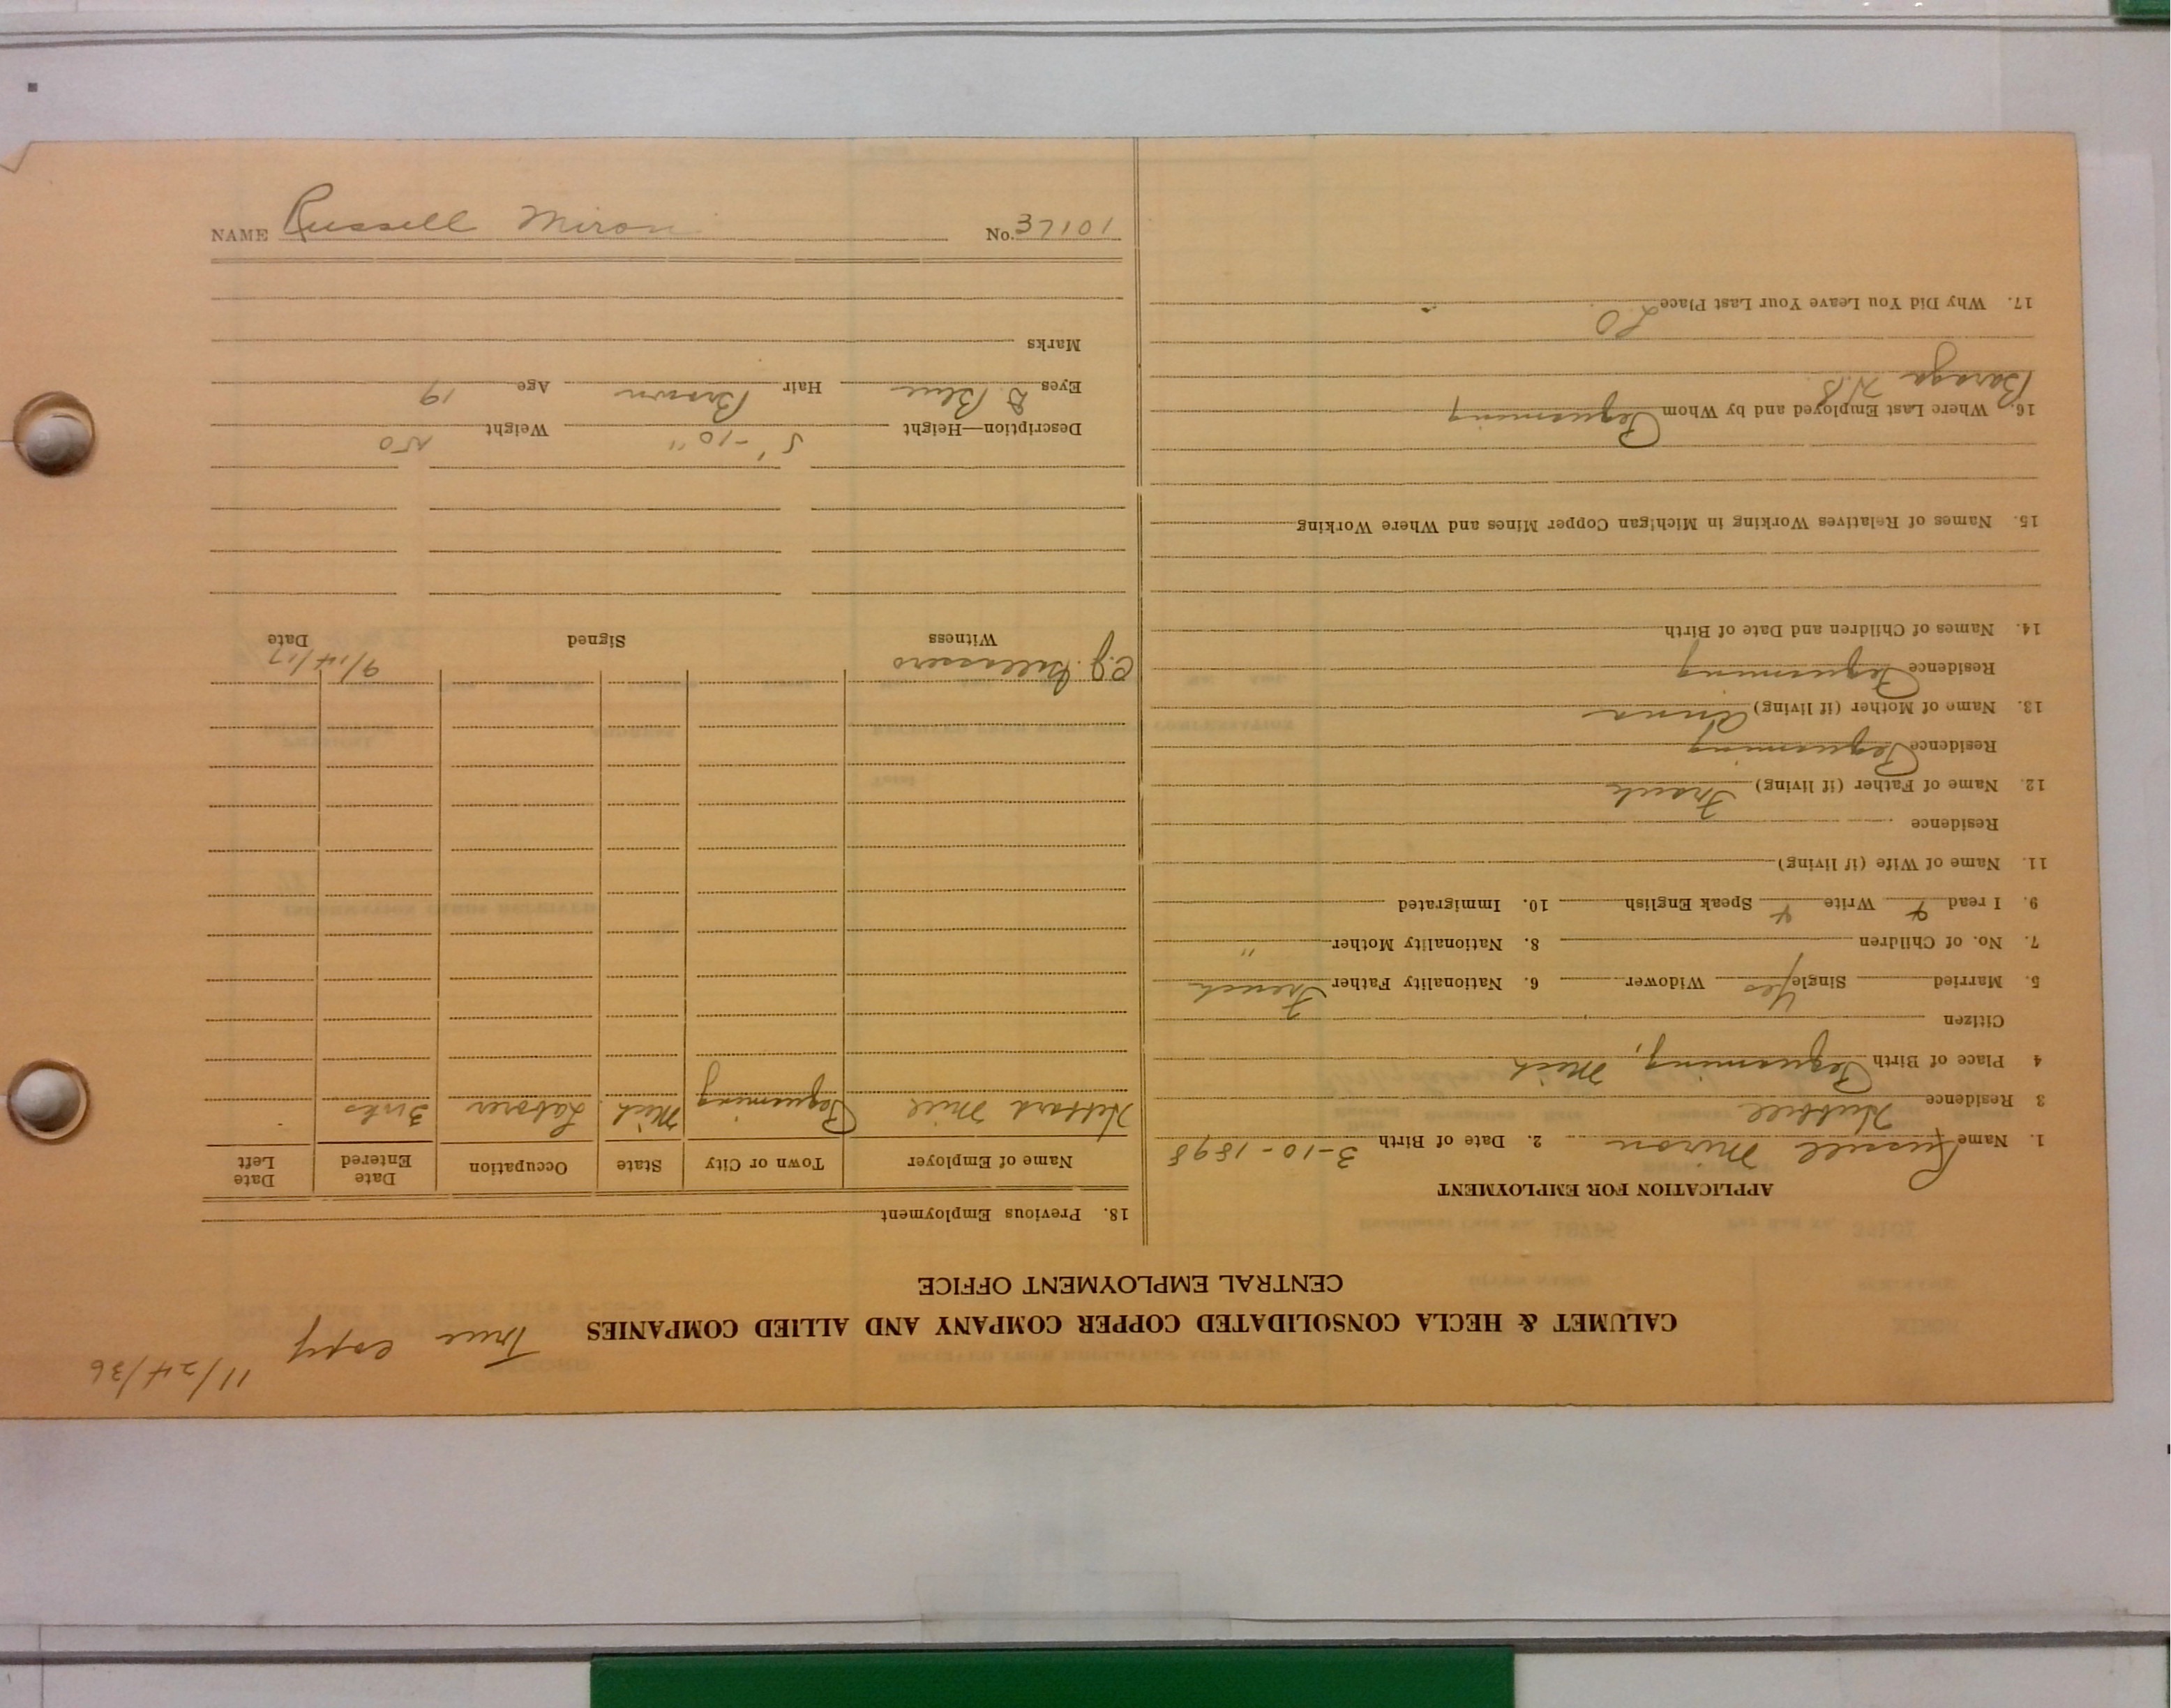 NAME Russell Miron No. 37101
11/24/36
True copy
CALUMET & HECLA CONSOLIDATED COPPER COMPANY AND ALLIED COMPANIES
CENTRAL EMPLOYMENT OFFICE
APPLICATION FOR EMPLOYMENT
1. Name Russell Miron 2. Date of Birth 3-10-1898
3 Residence Hubbell
4 Place of Birth Pequaming, Mich
Citizen
5. Married Single Yes Widower 6. Nationality Father French
7. No. of Children 8. Nationality Mother "
9. I read Write Speak English 10. Immigrated
11. Name of Wife (if living)
Residence
12. Name of Father (if living) Frank
Residence Pequaming
13. Name of Mother (if living) Anna
Residence Pequaming
14. Names of Children and Date of Birth
15. Names of Relatives Working in Michigan Copper Mines and Where Working
16. Where Last Employed and by Whom Pequaming
Baraga
17. Why Did You Leave Your Last Place LO
18. Previous Employment
Name of Employer Town or City State Occupation Date Entered Date Left
Hebbard Mill Pequaming Mich Laborer 3 wks
C.J. 9/14/17
Witness Signed Date
Description—Height 5'-10" Weight 150
Eyes D Blue Hair Brown Age 19
Marks